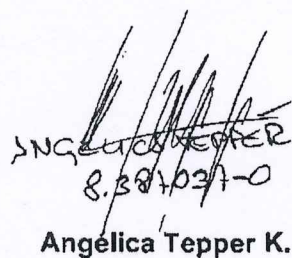 ANGELICA TEPPER
8.387.037-0
Angélica Tepper K.